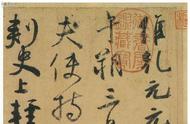 維乾元元
午朔三
夫使持
刺史上輕